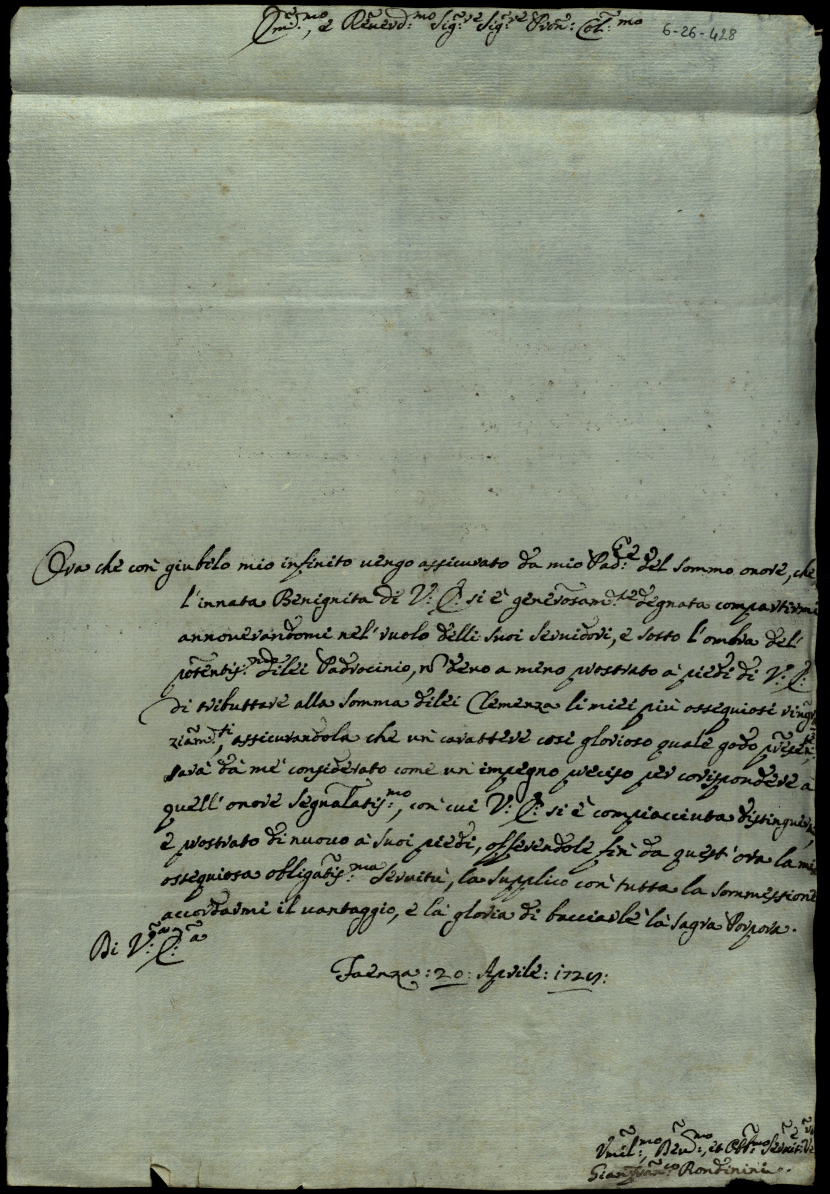 Em.mo, e Reverd.mo Sig.re Sig.re Pron: Col.mo 6-26-428
Ora che con giubilo mio infinito vengo assicurato da mio Pad.e del sommo onore, che
l'innata Benignita di V: E: si è generosam.te degnata compartirmi
annoverandomi nel' ruolo delli suoi servidori, e sotto l'ombra del'
potentis.mo di lei Padrocinio, nõ devo a meno prostrato à piedi di V: E:
di tributtare alla somma di lei Clemenza li miei più ossequiosi ringra
ziam.ti, assicurandola che un' carattere così glorioso quale godo
sarà da mè considerato come un' impegno preciso per corispondere à
quell' onore segnalatis.mo, con cui V: E: si è compiacciuta distinguer
e prostrato di nuovo à suoi piedi, offerendole fin da quest' ora la mi
ossequiosa obligatis.ma servitù, la supplico con tutta la sommessione
accordarmi il vantaggio, e la gloria di bacciarle la sagra Porpora.
Di V.ra E.a
Faenza: 20: Aprile:
Vmil.mo, Dev.mo, et Obl.mo Servit.re
Gianfran.co Rondinini